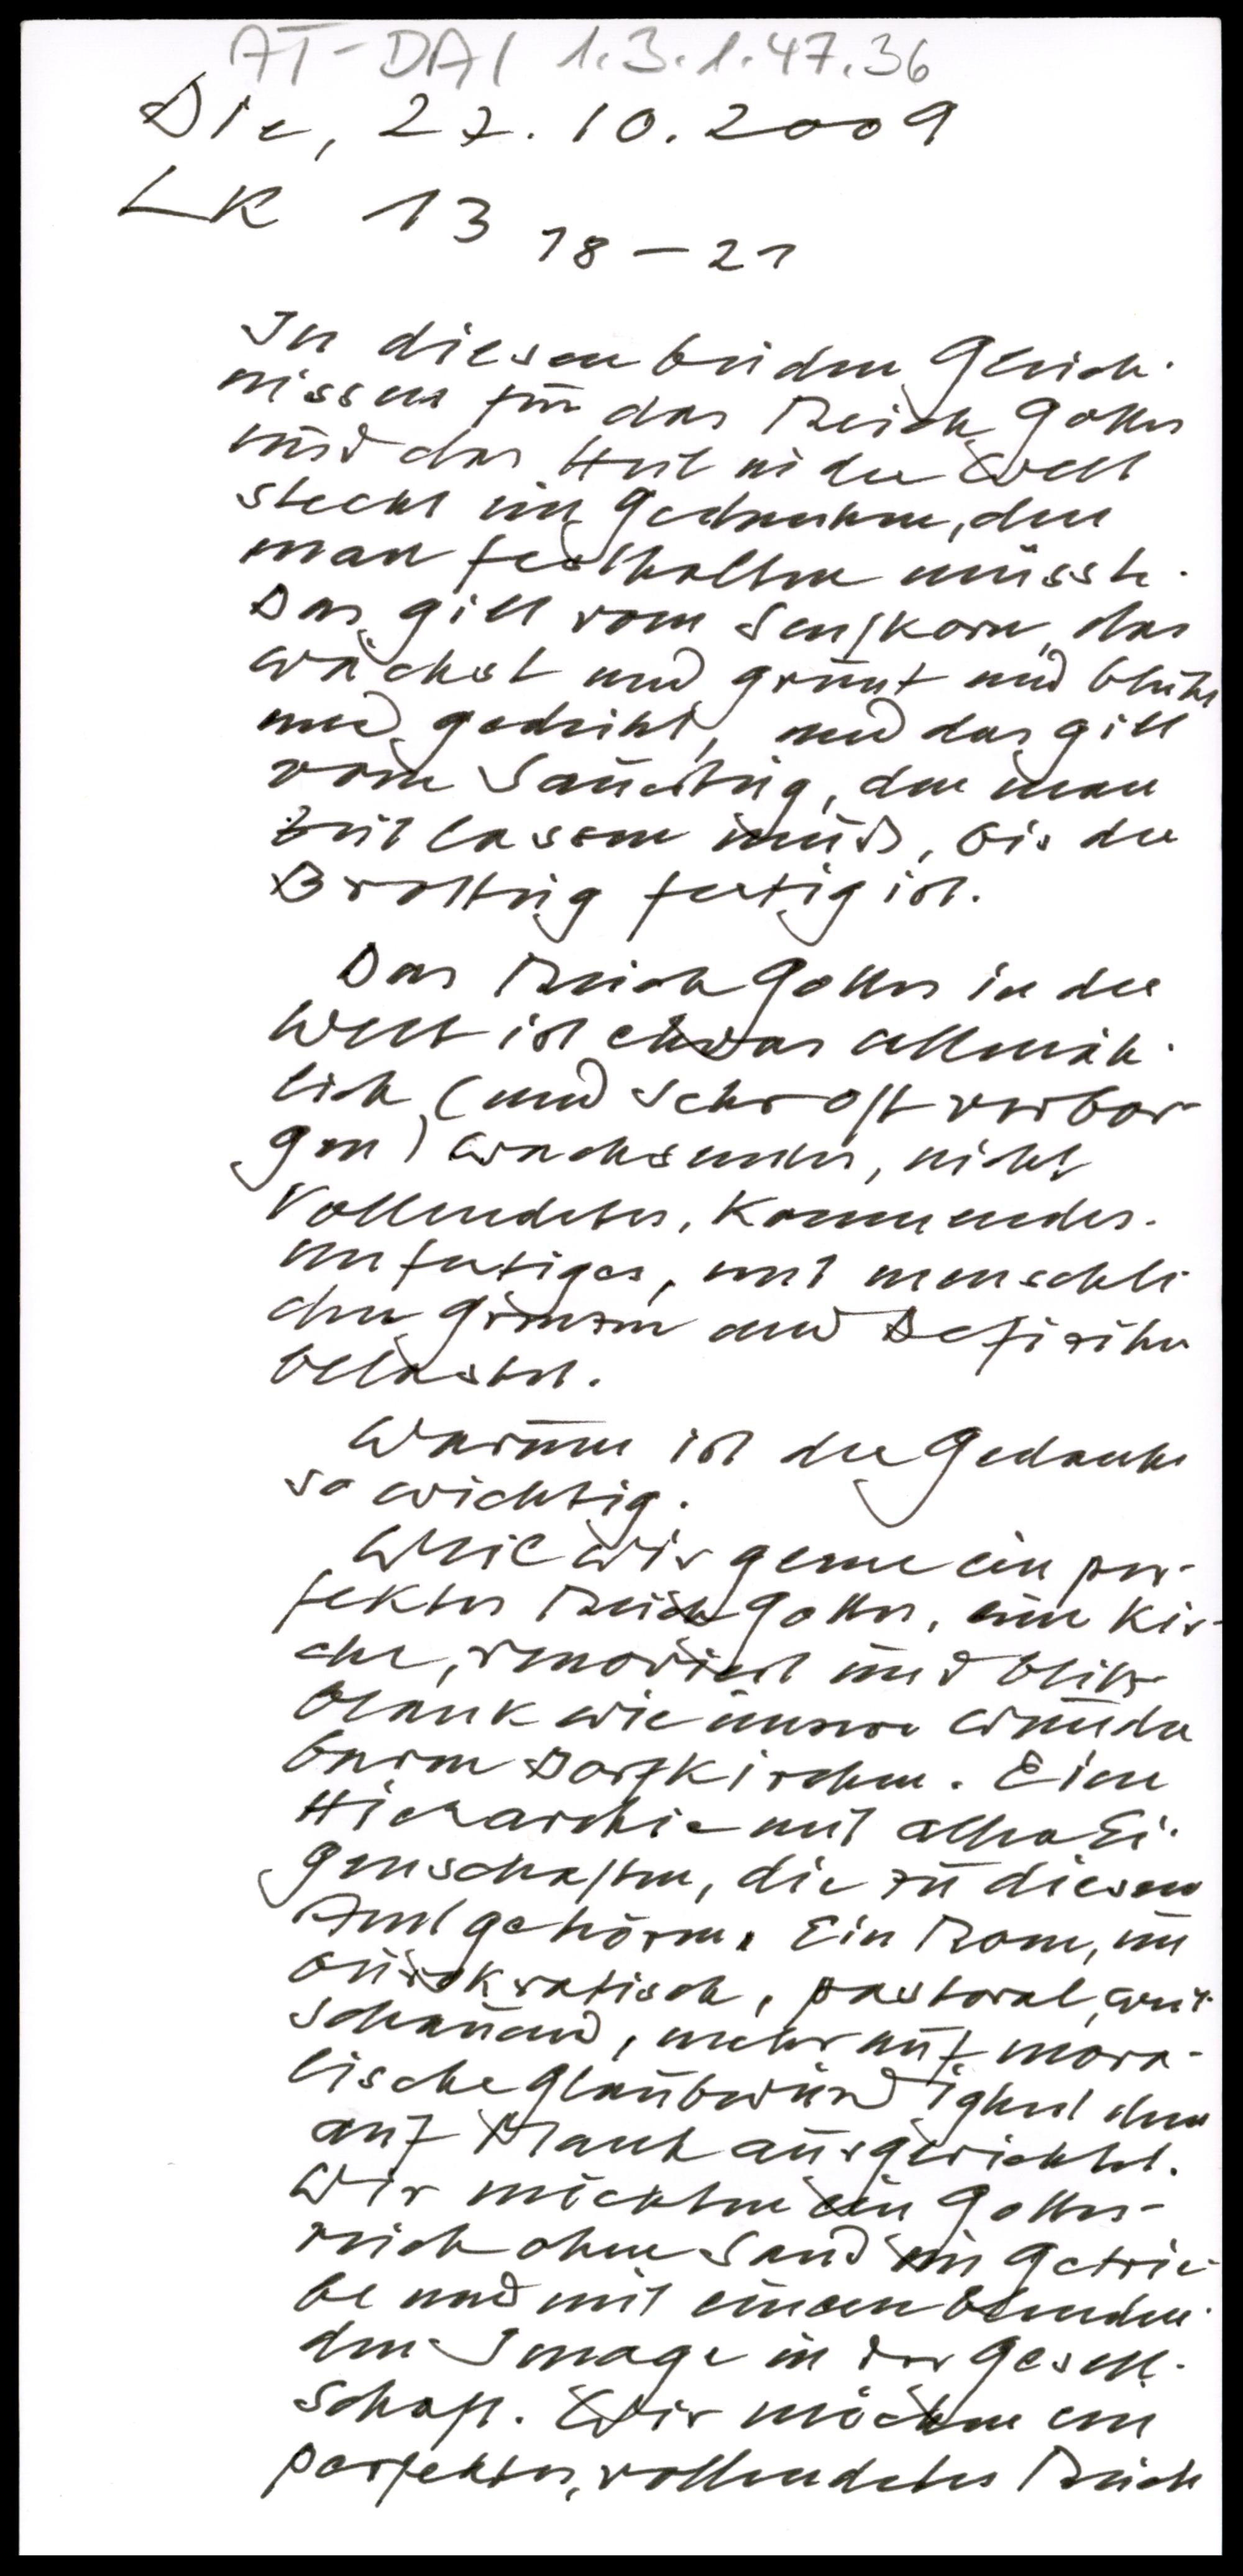 AT-DA/ 1.3.1.47.36
Die, 27.10.2009
LK 13 18-21
In diesen beiden Gleich-
nissen für das Reich Gottes
und das Heil in der Welt
steckt ein Gedanken, den
man festhalten müsste.
Das gilt vom Senfkorn, das
wächst und grünt und blüht
und gedeiht, und das gilt
vom Sauerteig, den man
Zeit lassen muß, bis der
Brotteig fertig ist.
Das Reich Gottes in der
Welt ist etwas allmäh-
lich (und sehr oft verbor-
gen) wachsendes, nicht
Vollendetes, Kommendes.
unfertiges, mit menschli
chen Grenzen und Defiziten
belastet.
Warum ist der Gedanke
so wichtig.
Weil wir gerne ein per-
fektes Reich Gottes, eine Kir-
che, renoviert und blitz
blank wie unsere wunder
baren Dorfkirchen. Eine
Hierarchie mit allen Ei-
genschaften, die zu diesem
Amt gehören. Ein Rom, un
bürokratisch, pastoral, weit
schauend, mehr auf mora-
lische Glaubwürdigkeit denn
auf Macht ausgerichtet.
Wir möchten ein Gottes-
reich ohne Sand im Getrie-
be und mit einem blenden-
den Image in der Gesell-
schaft. Wir möchten ein
perfektes, vollendetes Reich